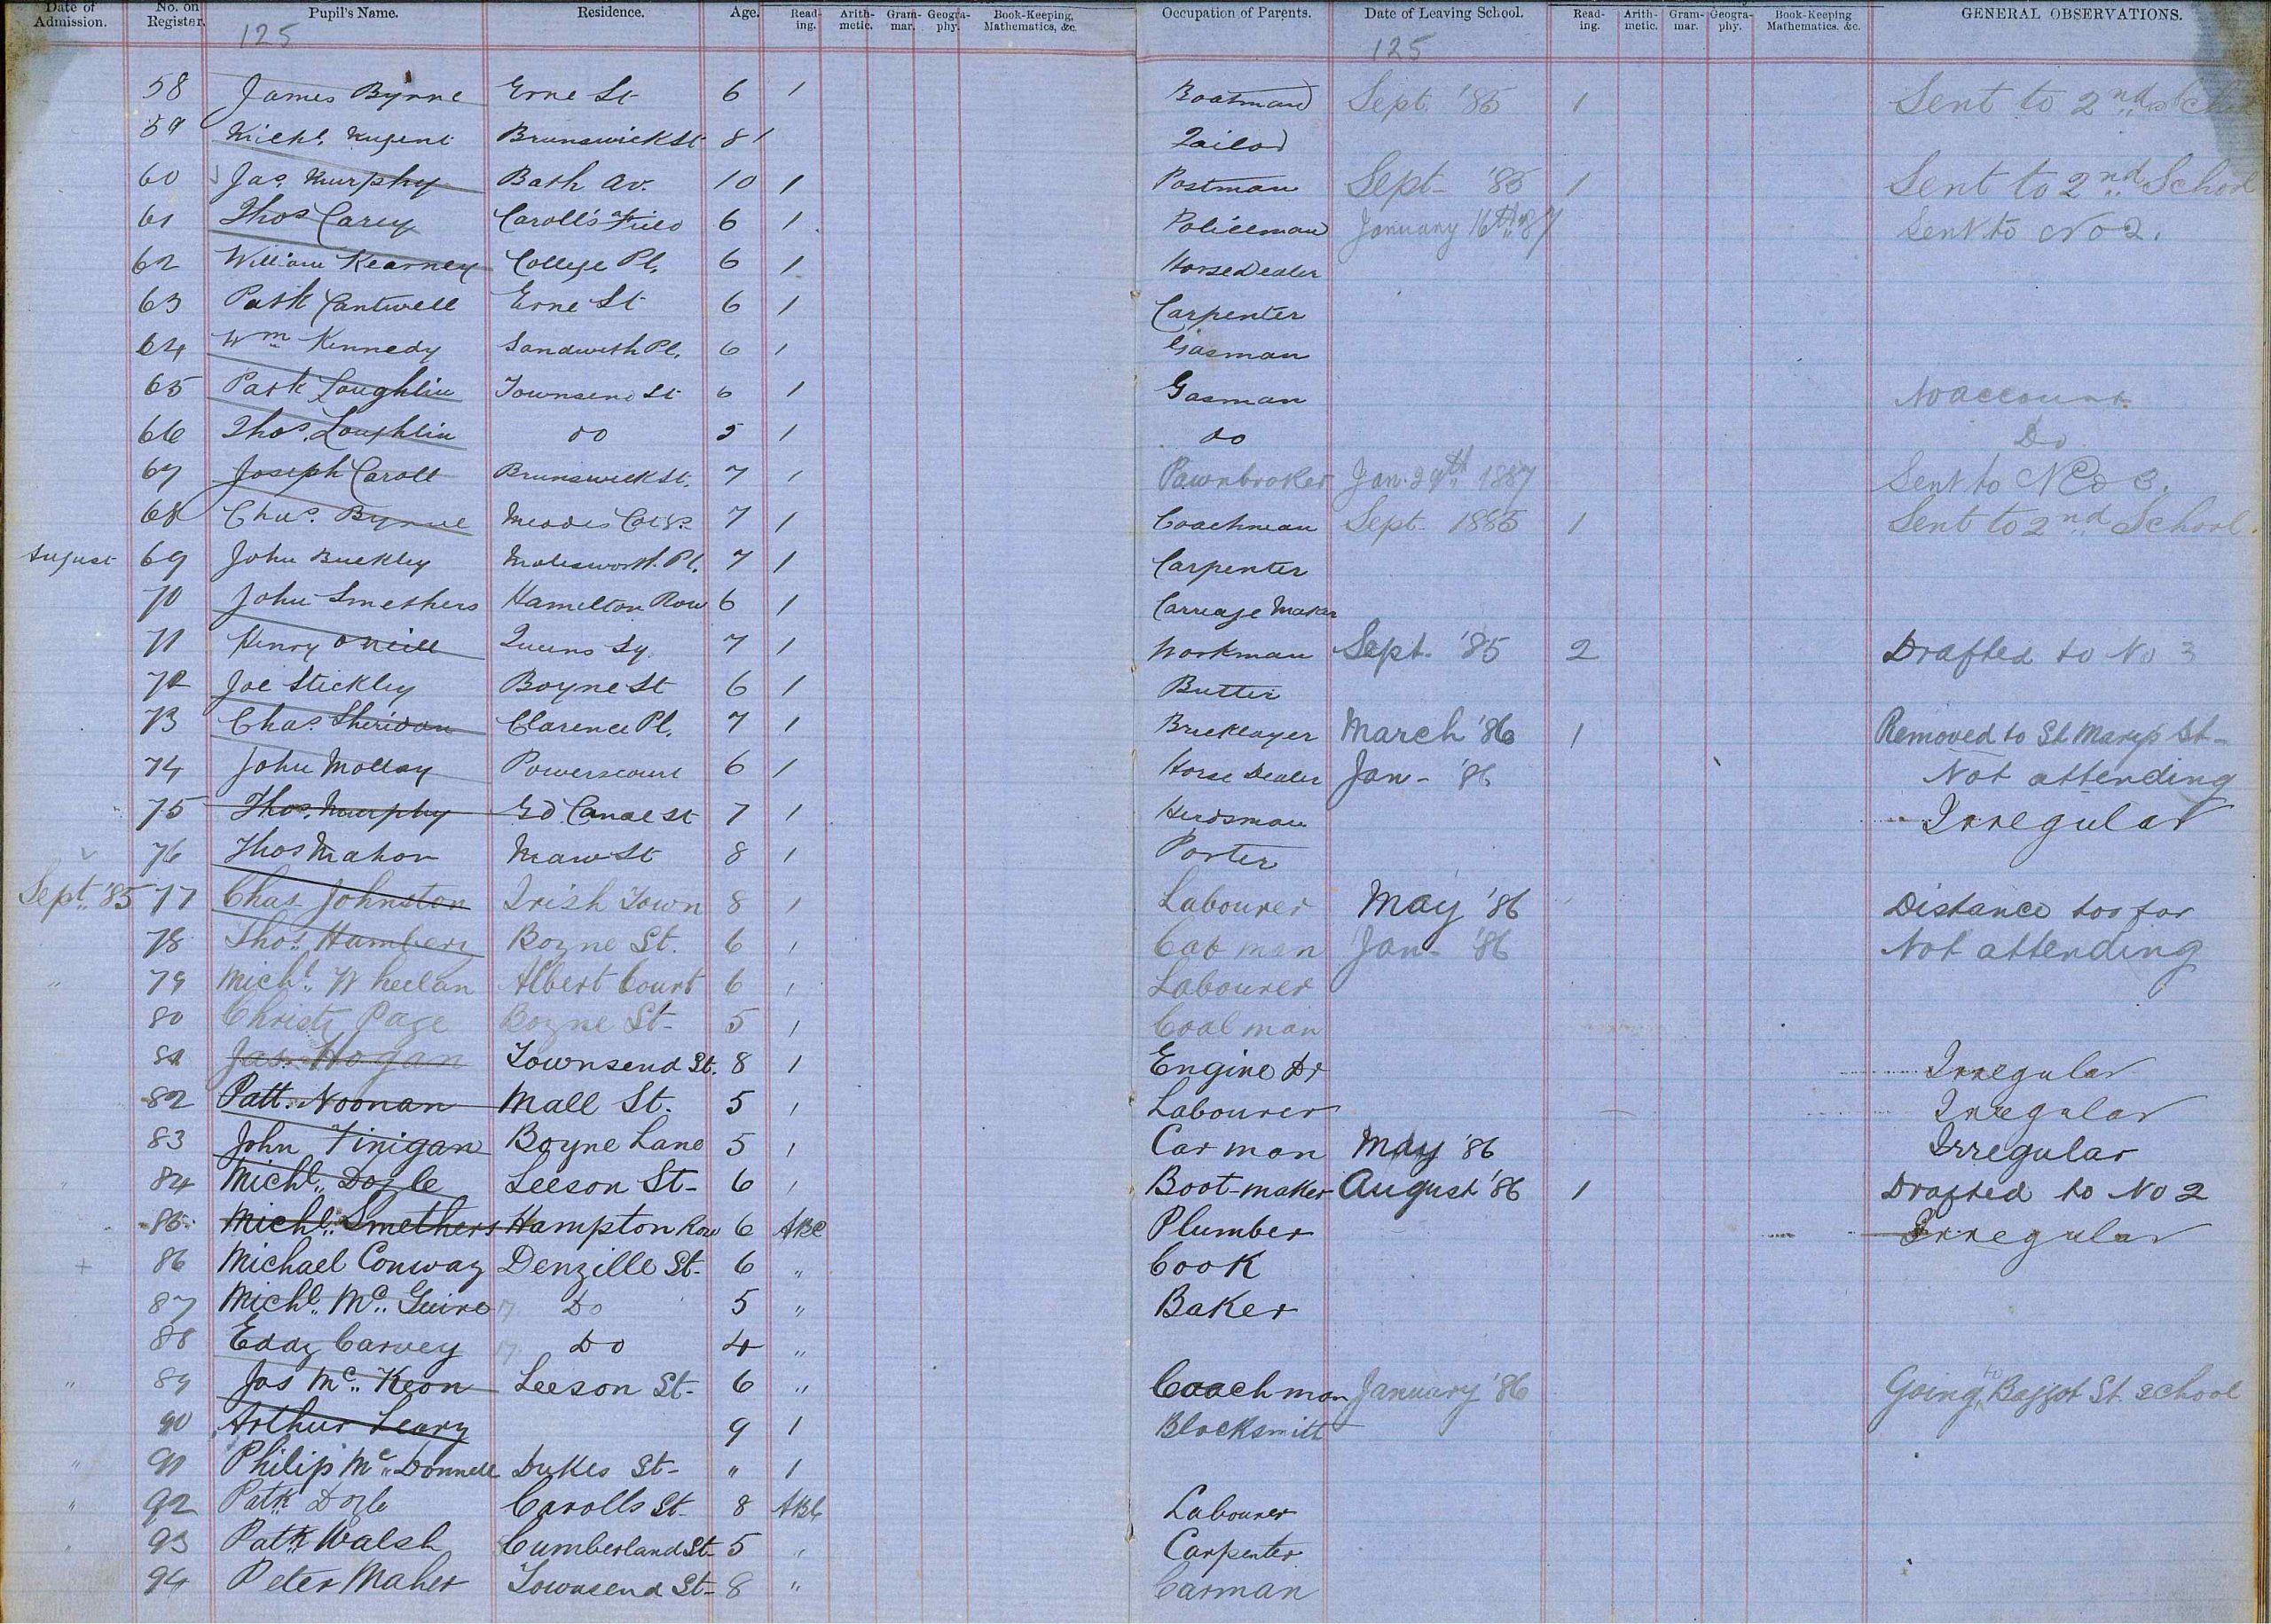 Date of Admission. No. on Register. Pupil's Name. Residence. Age. Read-ing. Arith-metic. Gram-mar. Geogra-phy. Book-Keeping, Mathematics, &c. Occupation of Parents. Date of Leaving School. Read-ing. Arith-metic. Gram-mar. Geogra-phy. Book-Keeping Mathematics, &c. GENERAL OBSERVATIONS.
125 125
58 James Byrne Erne St 6 1 Boatman Sept. '85 1 Sent to 2nd
59 Michl. Nugent Brunswick St 8 1 Tailor
60 Jas. Murphy Bath Av. 10 1 Postman Sept - '85 1 Sent to 2nd School
61 Thos Carey Caroll's Field 6 1 Policeman January 16th '87 Sent to No 2.
62 William Kearney College Pl. 6 1 Horse Dealer
63 Patk Cantwell Erne St 6 1 Carpenter
64 Wm Kennedy Sandwith Pl. 6 1 Gasman
65 Patk Loughlin Townsend St 6 1 Gasman No account
66 Thos. Loughlin do 5 1 do Do
67 Joseph Caroll Brunswick St. 7 1 Pawnbroker Jan. 1887 Sent to No 3.
68 Chas. Byrne Meades 7 1 Coachman Sept - 1885 1 Sent to 2nd School.
August 69 John Buckley Molesworth. Pl. 7 1 Carpenter
70 John Smethers Hamilton Row 6 1 Carriage Maker
71 Henry O Neill Queens Sq. 7 1 Workman Sept. '85 2 Drafted to No 3
72 Joe Stickley Boyne St 6 1 Butler
73 Chas. Sheridan Clarence Pl. 7 1 Bricklayer March '86 1 Removed to St Marys St -
74 John Molloy Powerscourt 6 1 Horse Dealer Jan - '86 Not attending
75 Thos. Murphy Gd Canal St 7 1 Herdsman Irregular
76 Thos Mahon 8 1 Porter
Sept. '85 77 Chas Johnston Irish Town 8 1 Labourer May '86 Distance too far
78 Thos. Hambery Boyne St. 6 1 Cab man Jan - '86 Not attending
" 79 Michl. Wheelan Albert Court 6 1 Labourer
80 Christy Page Boyne St - 5 1 Coal man
81 Jas. Hogan Townsend St. 8 1 Engine Dr Irregular
82 Patt. Noonan Mall St. 5 1 Labourer Irregular
83 John Finigan Boyne Lane 5 1 Car man May '86 Irregular
" 84 Michl. Doyle Leeson St - 6 1 Boot-maker August '86 1 Drafted to No 2
85 Michl. Smethers Hampton Row 6 ABC Plumber Irregular
+ 86 Michael Conway Denzille St - 6 " Cook
87 Michl. Mc. Guire Do 5 " Baker
88 Eddy Carvey Do 4 "
" 89 Jas Mc. Keon Leeson St - 6 " Coach man January '86 Going to Baggot St. School
90 Arthur Leary 9 1 Blacksmith
" 91 Philip Mc. Donnell Dukes St - " 1
" 92 Patk Doyle Carolls St - 8 ABC Labourer
" 93 Patk Walsh Cumberland St - 5 " Carpenter
94 Peter Maher Townsend St - 8 " Carman